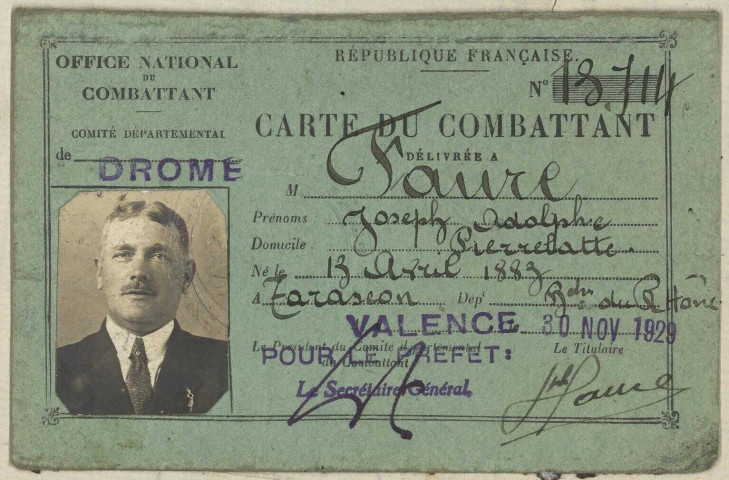 OFFICE NATIONAL
DU
COMBATTANT
COMITÉ DÉPARTEMENTAL
de DROME
RÉPUBLIQUE FRANÇAISE.
N° 13714
CARTE DU COMBATTANT
DÉLIVRÉE A
M Faure
Prénoms Joseph Adolphe
Domicile Pierrelatte
Né le 13 Avril 1883
A Tarascon Dépt Bches du Rhône
VALENCE 30 NOV 1929
Le Président du Comité départemental
du Combattant
Le Titulaire
POUR LE PREFET:
Le Secrétaire Général,
Faure